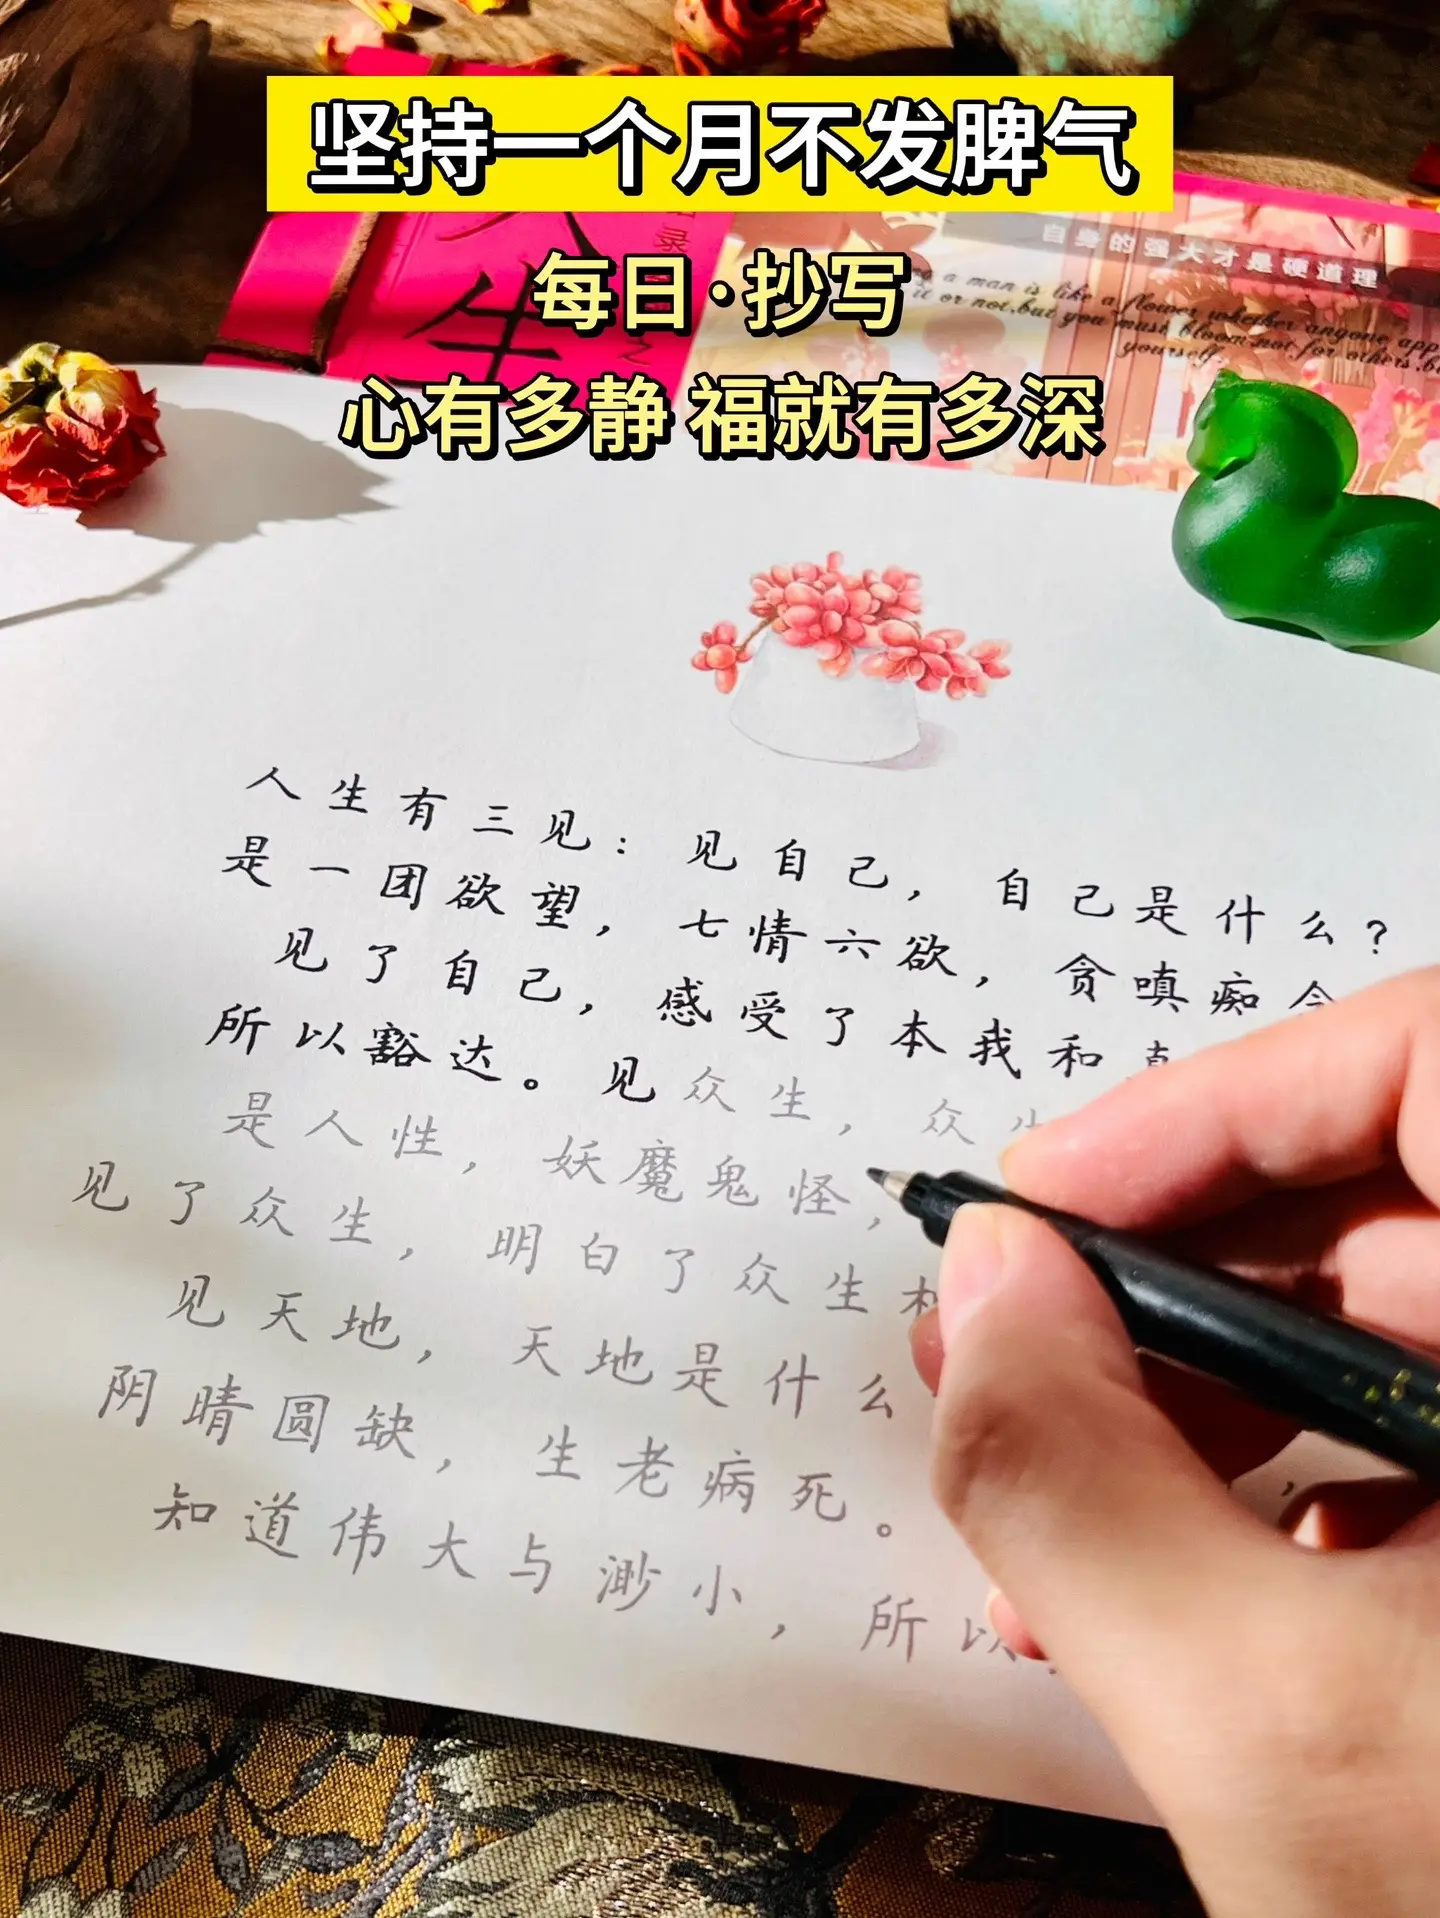 坚持一个月不发脾气
每日·抄写
心有多静 福就有多深
生
自身的强大才是硬道理
a man is like a flower whether anyone app
it or not,but you must bloom not for others,b
yourself.
人生有三见：见自己，自己是什么？
是一团欲望，七情六欲，贪嗔痴
见了自己，感受了本我和
所以豁达。见众生，众生
是人性，妖魔鬼怪，
见了众生，明白了众生
见天地，天地是什么
阴晴圆缺，生老病死。
知道伟大与渺小，所以